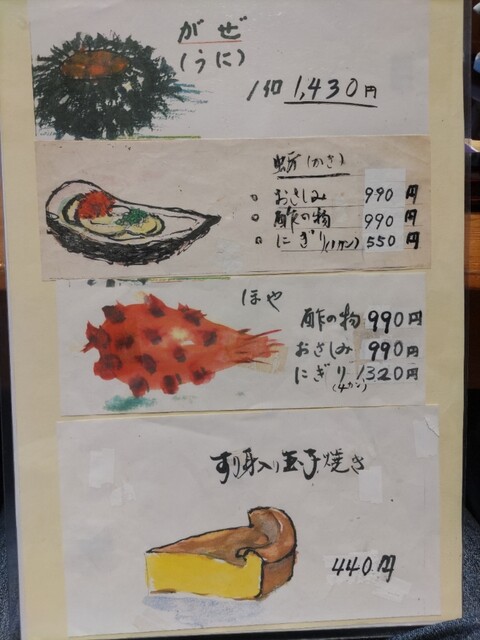 がぜ
(うに)
1ケ 1,430円
蛎(かき)
おさしみ 990円
酢の物 990円
にぎり(1カン) 550円
ほや
酢の物 990円
おさしみ 990円
にぎり 1320円
(4カン)
すり身入り玉子焼き
440円